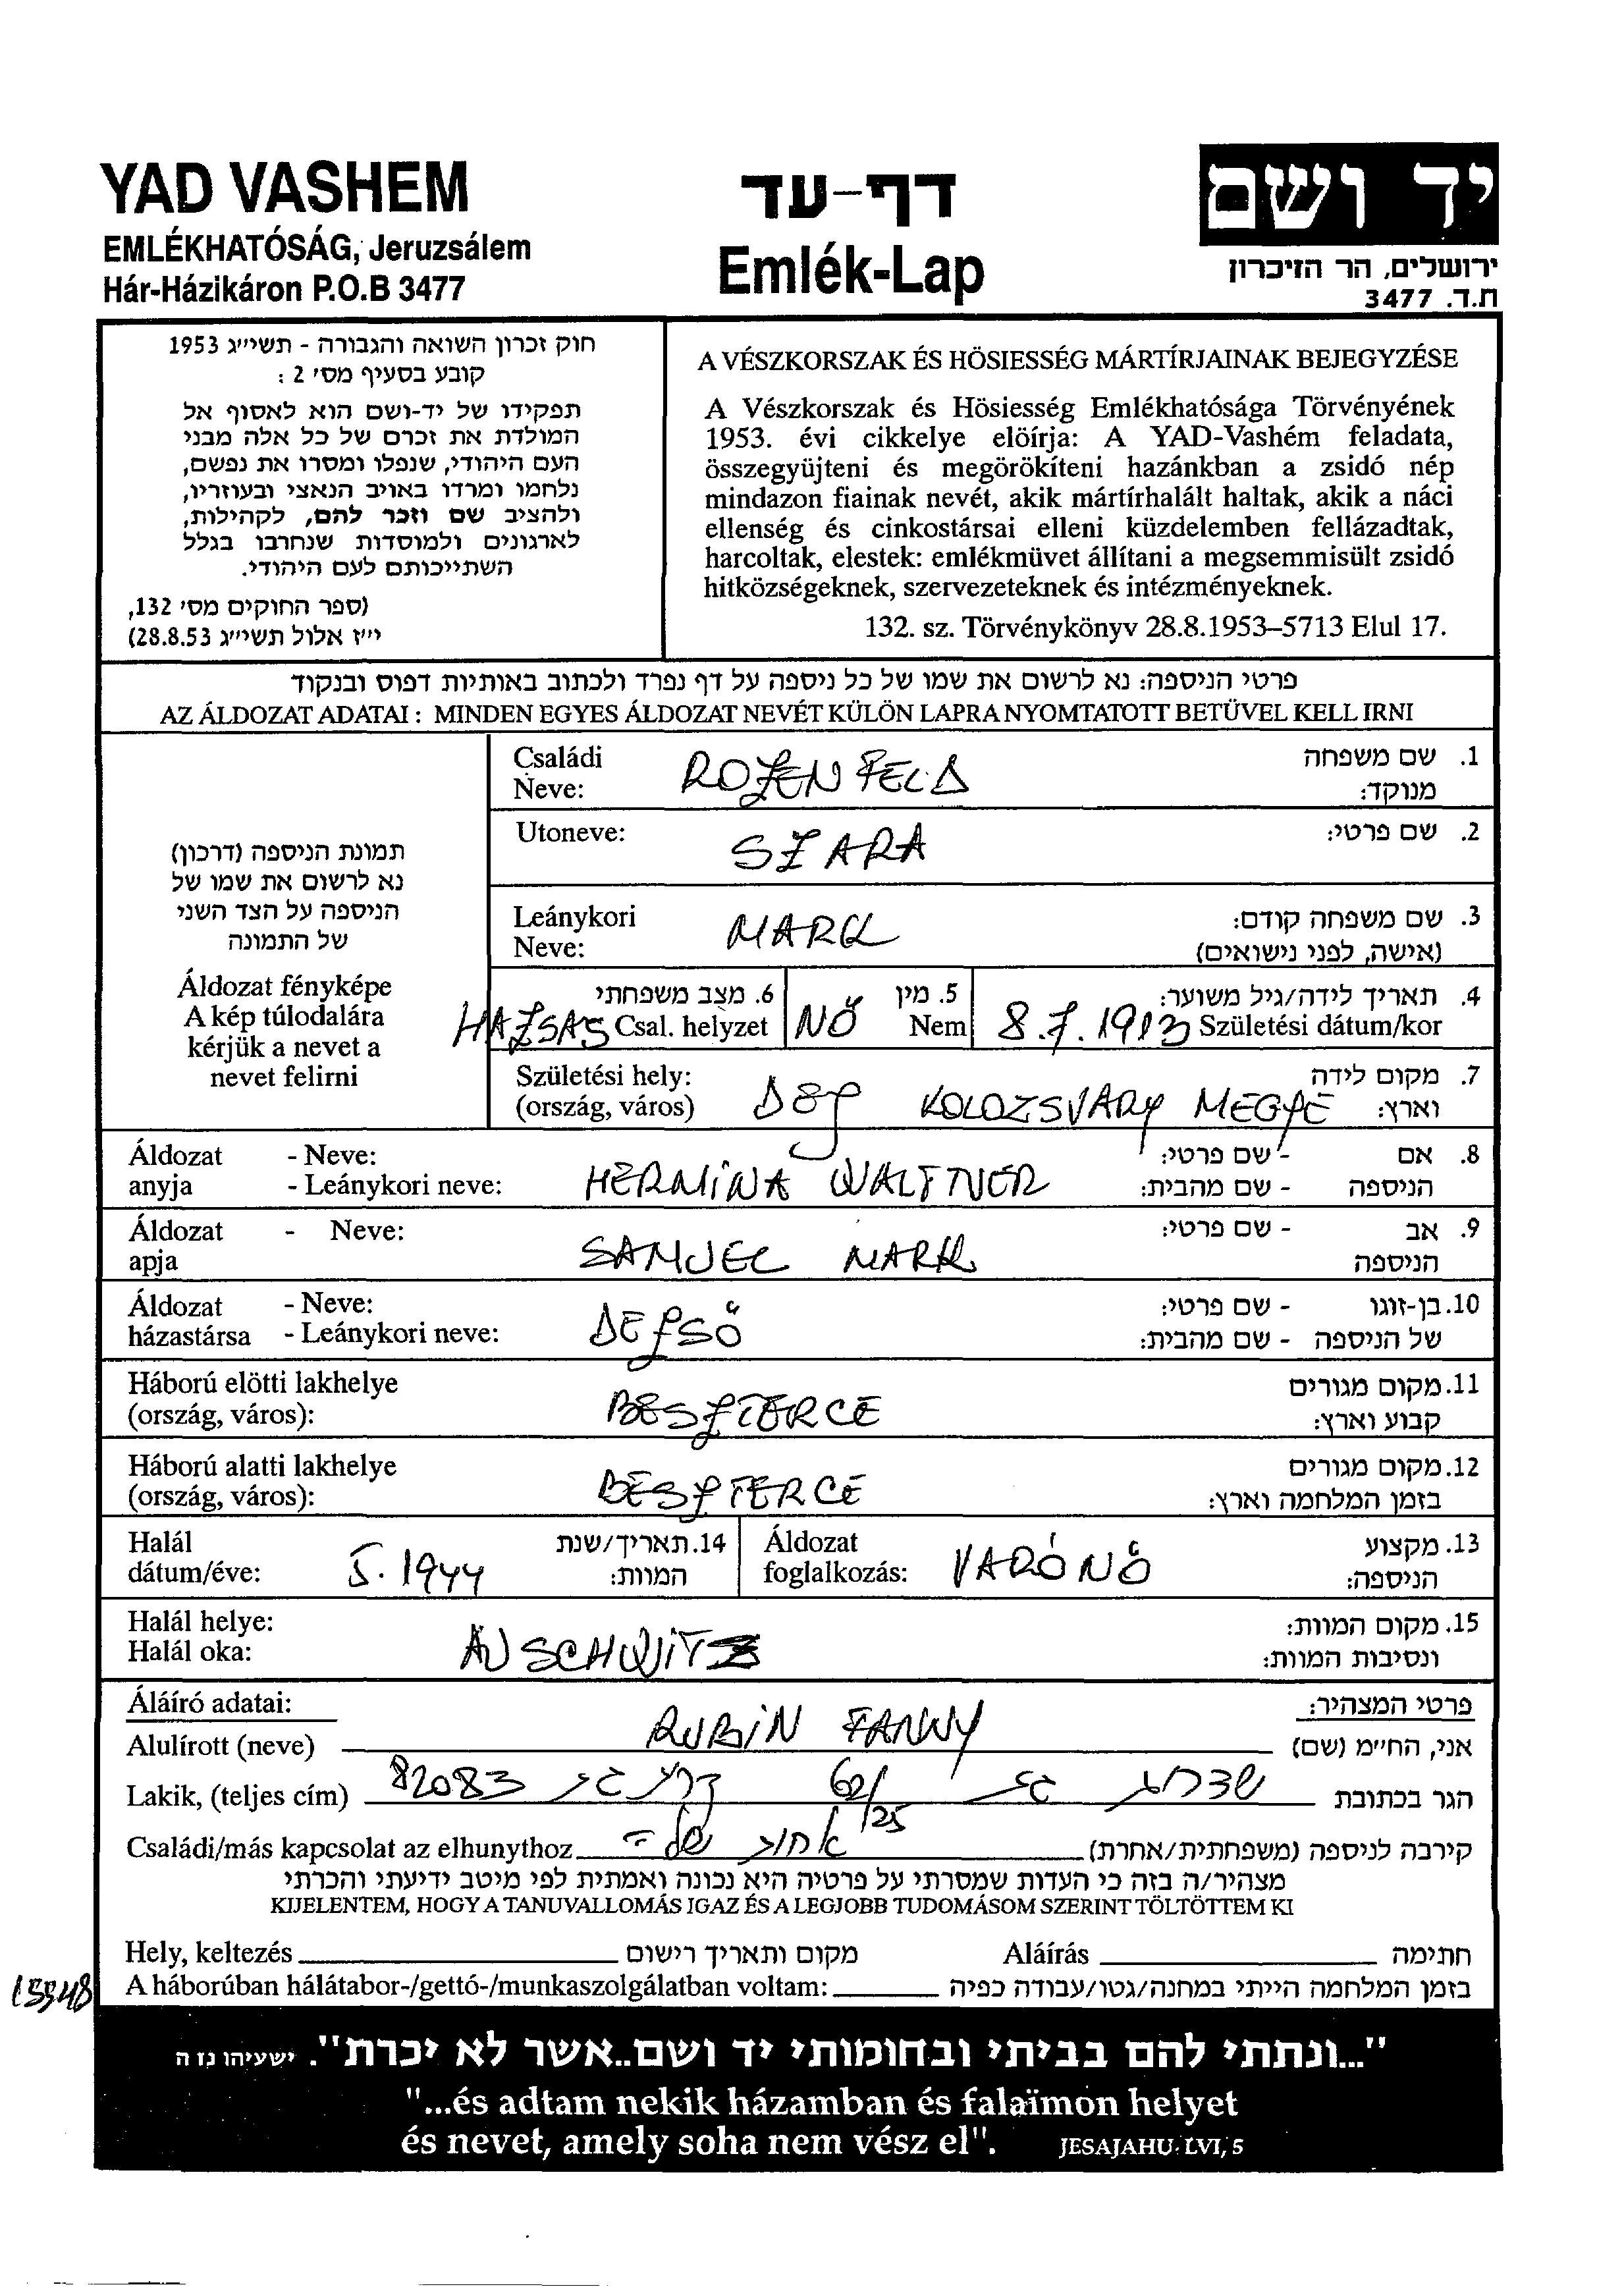 YAD VASHEM
EMLÉKHATÓSÁG, Jeruzsálem
Hár-Házikáron P.O.B 3477
דף-עד
Emlék-Lap
יד ושם
ירושלים, הר הזיכרון
ת.ד. 3477
חוק זכרון השואה והגבורה - תשי״ג 1953
קובע בסעיף מס׳ 2 :
תפקידו של יד-ושם הוא לאסוף אל
המולדת את זכרם של כל אלה מבני
העם היהודי, שנפלו ומסרו את נפשם,
נלחמו ומרדו באויב הנאצי ובעוזריו,
ולהציב שם וזכר להם, לקהילות,
לארגונים ולמוסדות שנחרבו בגלל
השתייכותם לעם היהודי.
(ספר החוקים מס׳ 132,
י״ז אלול תשי״ג 28.8.53)
A VÉSZKORSZAK ÉS HÖSIESSÉG MÁRTÍRJAINAK BEJEGYZÉSE
A Vészkorszak és Hösiesség Emlékhatósága Törvényének
1953. évi cikkelye elöírja: A YAD-Vashém feladata,
összegyüjteni és megörökíteni hazánkban a zsidó nép
mindazon fiainak nevét, akik mártírhalált haltak, akik a náci
ellenség és cinkostársai elleni küzdelemben fellázadtak,
harcoltak, elestek: emlékmüvet állítani a megsemmisült zsidó
hitközségeknek, szervezeteknek és intézményeknek.
132. sz. Törvénykönyv 28.8.1953–5713 Elul 17.
פרטי הניספה: נא לרשום את שמו של כל ניספה על דף נפרד ולכתוב באותיות דפוס ובנקוד
AZ ÁLDOZAT ADATAI : MINDEN EGYES ÁLDOZAT NEVÉT KÜLÖN LAPRA NYOMTATOTT BETÜVEL KELL IRNI
תמונת הניספה (דרכון)
נא לרשום את שמו של
הניספה על הצד השני
של התמונה
Áldozat fényképe
A kép túlodalára
kérjük a nevet a
nevet felirni
Családi ROZENFELD 1. שם משפחה
Neve: מנוקד:
Utoneve: SZARA 2. שם פרטי:
Leánykori MARK 3. שם משפחה קודם:
Neve: (אישה, לפני נישואים)
6. מצב משפחתי 5. מין 4. תאריך לידה/גיל משוער:
HAZSAS Csal. helyzet NŐ Nem 8.7.1913 Születési dátum/kor
Születési hely: 7. מקום לידה
(ország, város) DÉJ KOLOZSVARY MEGYE וארץ:
Áldozat - Neve: - שם פרטי: 8. אם
anyja - Leánykori neve: HERMINA WALTNER - שם מהבית: הניספה
Áldozat - Neve: - שם פרטי: 9. אב
apja SAMUEL MARK הניספה
Áldozat - Neve: - שם פרטי: 10. בן-זוגו
házastársa - Leánykori neve: DEZSŐ - שם מהבית: של הניספה
Háború elötti lakhelye 11. מקום מגורים
(ország, város): BESZTERCE קבוע וארץ:
Háború alatti lakhelye 12. מקום מגורים
(ország, város): BESZTERCE בזמן המלחמה וארץ:
Halál 14. תאריך/שנת Áldozat 13. מקצוע
dátum/éve: 5.1944 המוות: foglalkozás: VARÓNŐ הניספה:
Halál helye: 15. מקום המוות:
Halál oka: AUSCHWITZ ונסיבות המוות:
Áláíró adatai: פרטי המצהיר:
Alulírott (neve) RUBIN FANNY אני, הח״מ (שם)
Lakik, (teljes cím) 82083 62/25 הגר בכתובת
Családi/más kapcsolat az elhunythoz אחות של קירבה לניספה (משפחתית/אחרת)
מצהיר/ה בזה כי העדות שמסרתי על פרטיה היא נכונה ואמתית לפי מיטב ידיעתי והכרתי
KIJELENTEM, HOGY A TANUVALLOMÁS IGAZ ÉS A LEGJOBB TUDOMÁSOM SZERINT TÖLTÖTTEM KI
Hely, keltezés מקום ותאריך רישום Aláírás חתימה
A háborúban hálátabor-/gettó-/munkaszolgálatban voltam: בזמן המלחמה הייתי במחנה/גטו/עבודה כפיה
15548
"...ונתתי להם בביתי ובחומותי יד ושם..אשר לא יכרת". ישעיהו נז ה
"...és adtam nekik házamban és falaïmon helyet
és nevet, amely soha nem vész el". JESAJAHU: LVI, 5